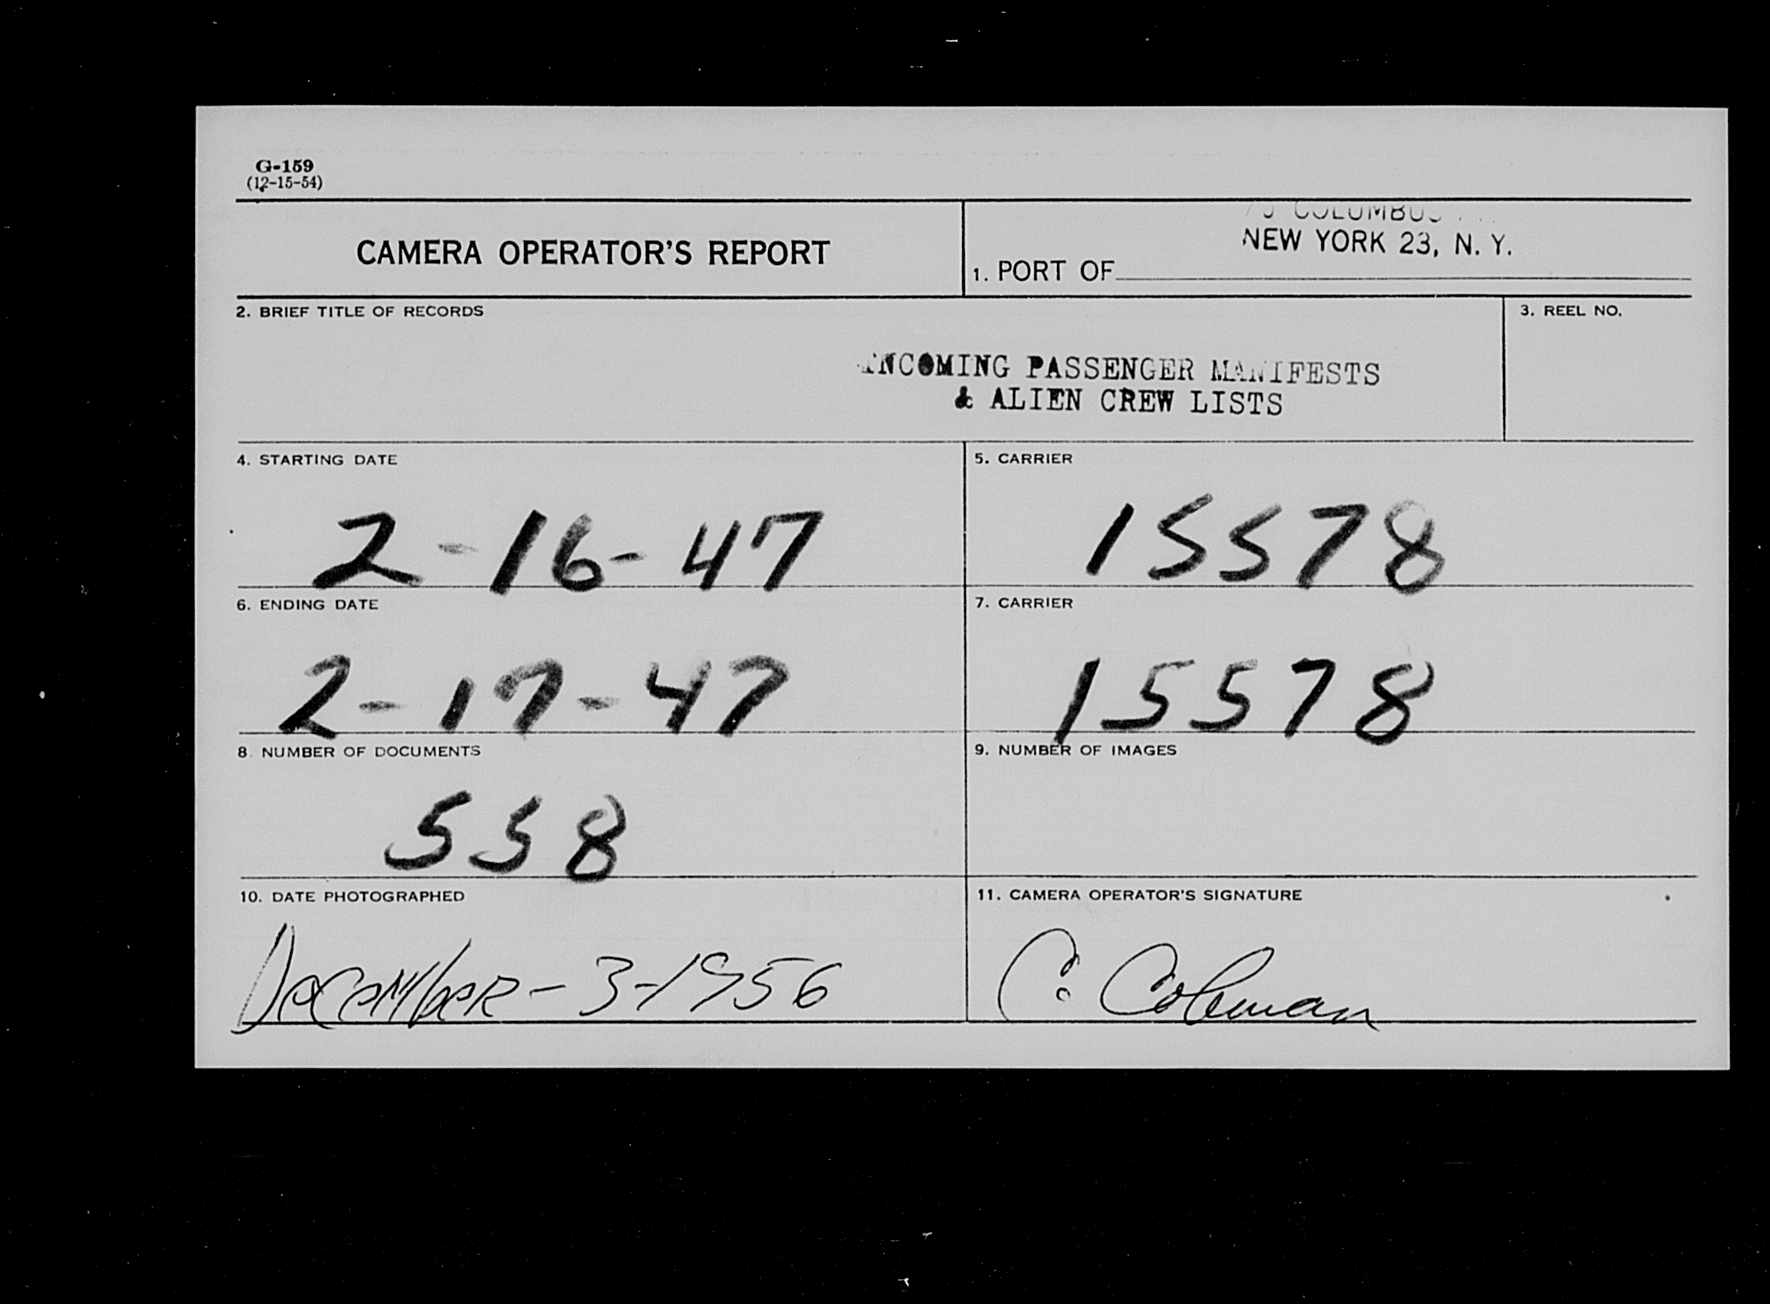 G-159
(12-15-54)
COLUMBUS
NEW YORK 23, N. Y.
CAMERA OPERATOR'S REPORT
1. PORT OF
2. BRIEF TITLE OF RECORDS
3. REEL NO.
INCOMING PASSENGER MANIFESTS
& ALIEN CREW LISTS
4. STARTING DATE
5. CARRIER
2-16-47
15578
6. ENDING DATE
7. CARRIER
2-17-47
15578
8. NUMBER OF DOCUMENTS
9. NUMBER OF IMAGES
558
10. DATE PHOTOGRAPHED
11. CAMERA OPERATOR'S SIGNATURE
December-3-1956
C. Coleman